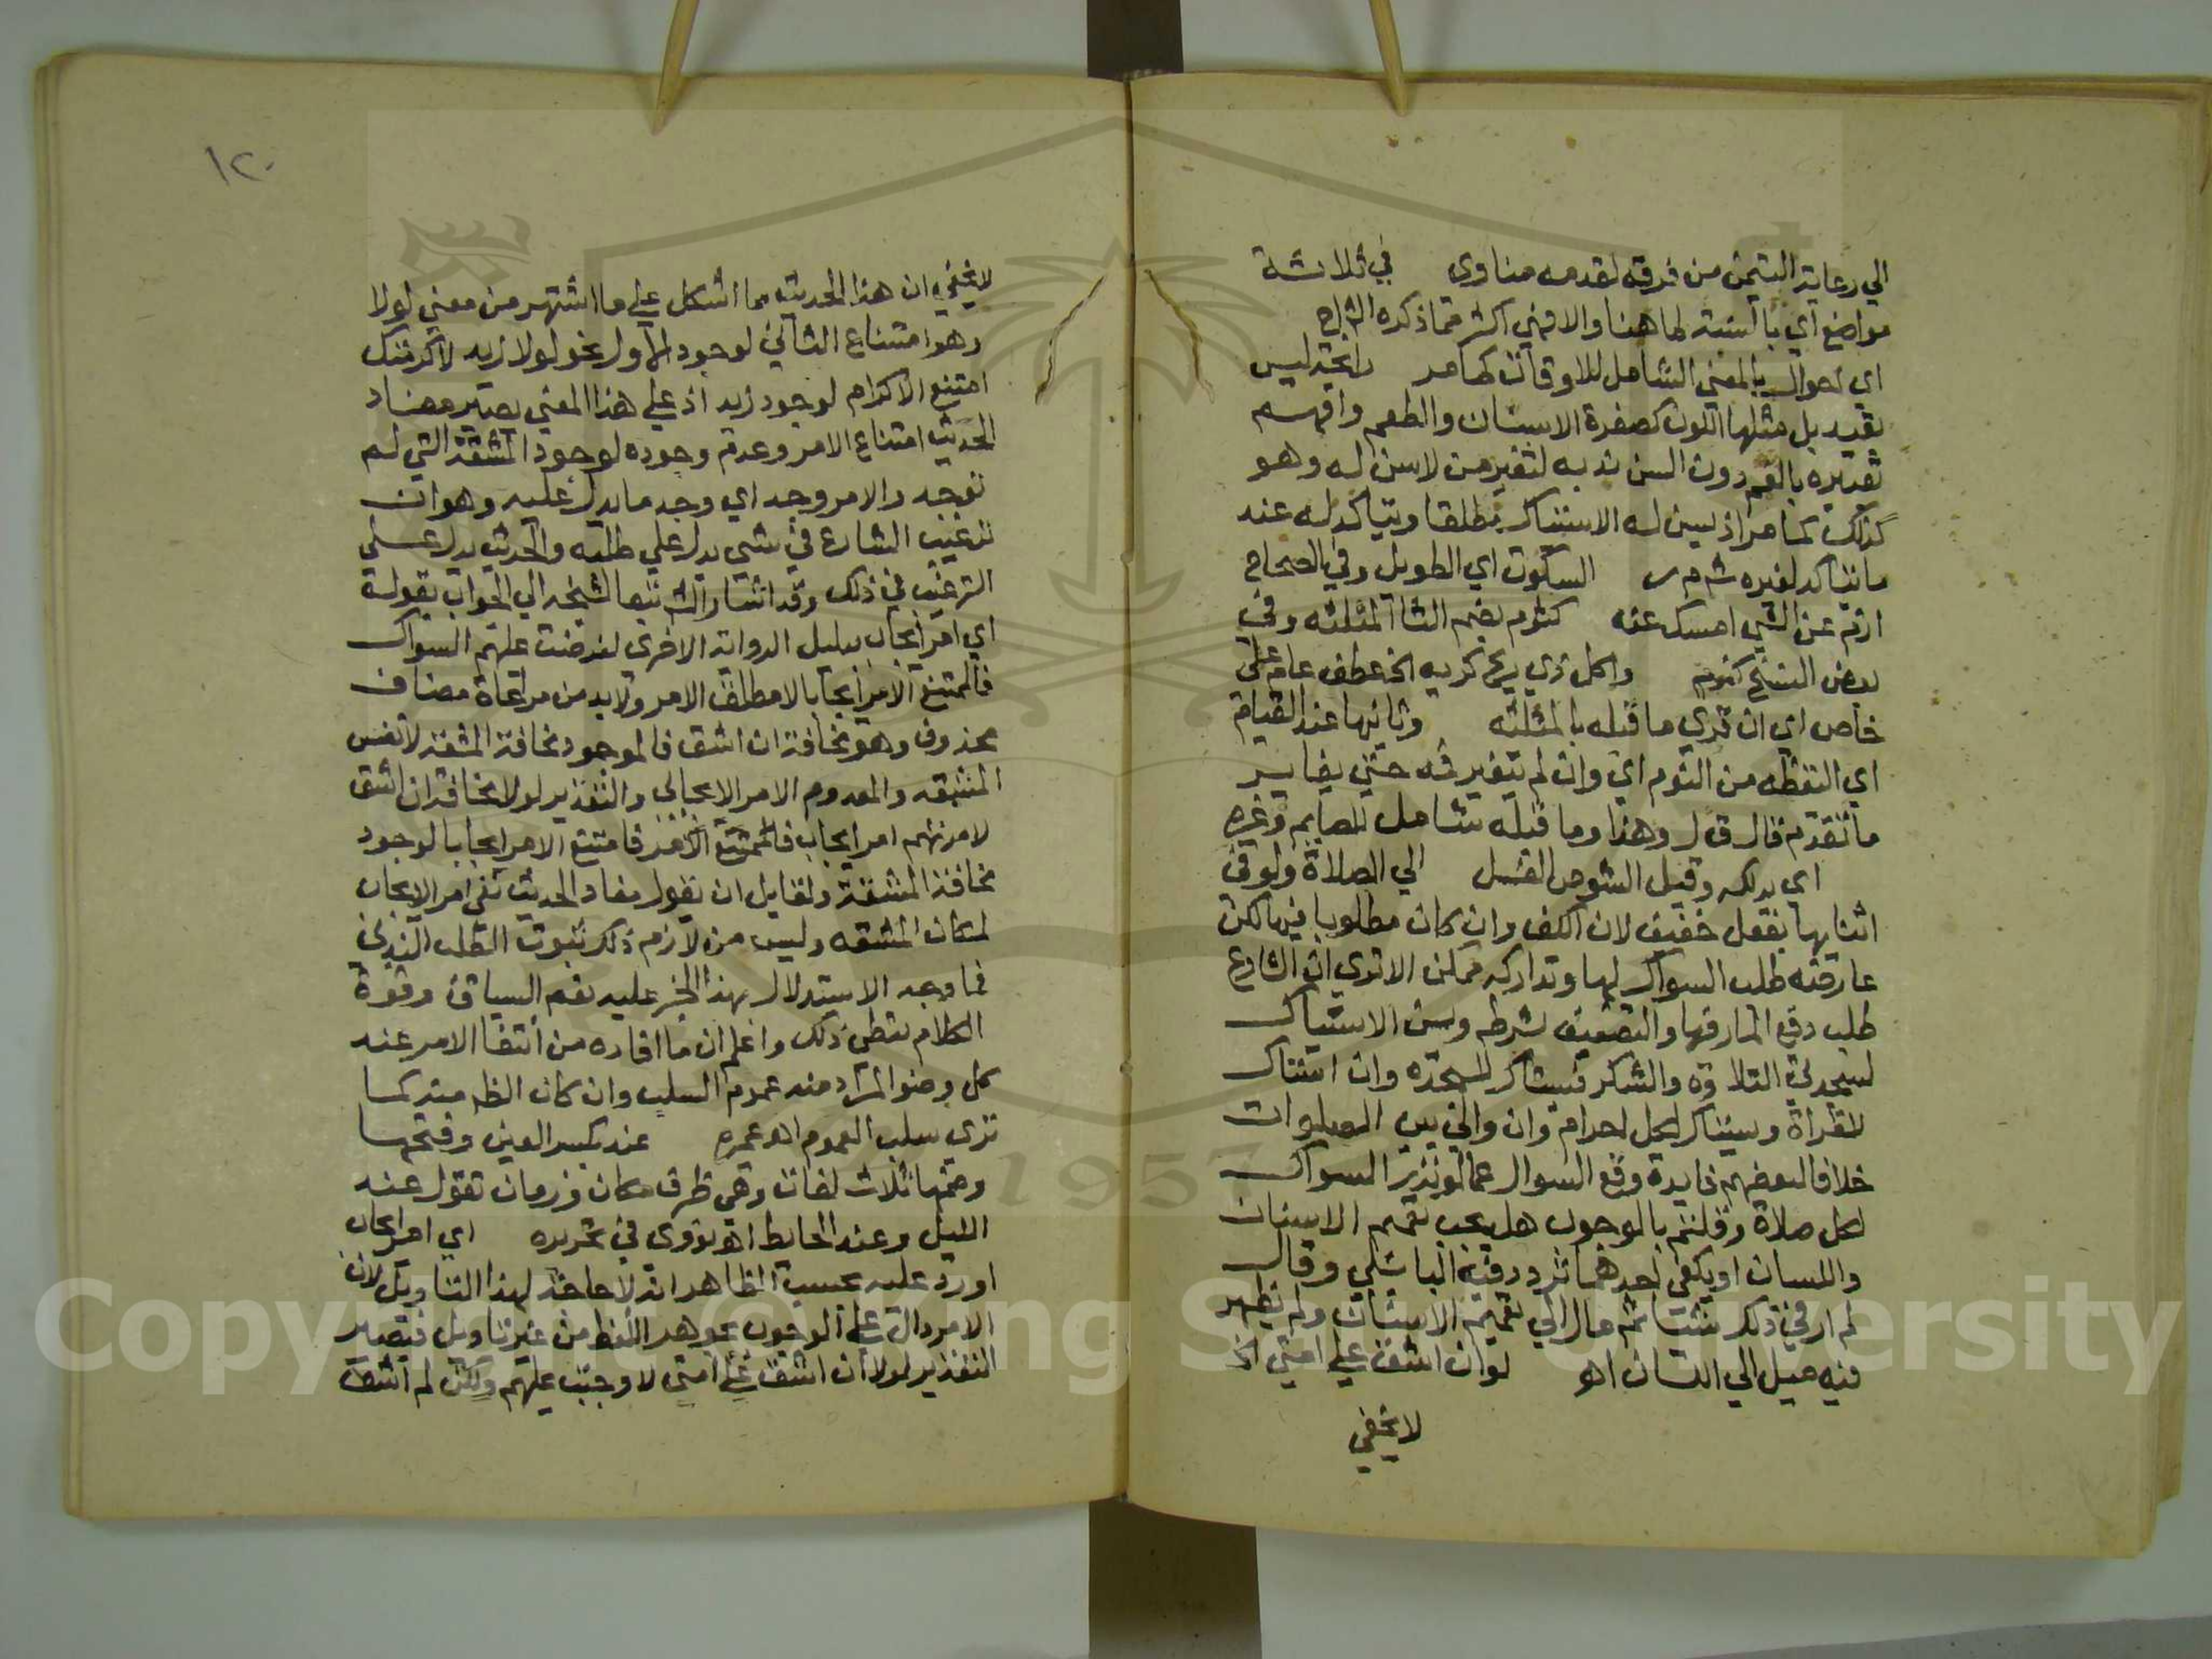 الي رعاية التيمن من فرقه لقدمه مناوى في ثلاثة
مواضع اي بالنسبة لما هنا والا فهي اكثر مما ذكره الشارح
اي احوال بالمعني الشامل للاوقات كما مر رائحة ليس
بقيد بل مثلها اللون كصفرة الاسنان والطعم وافهم
تعبيره بالفم دون السن ندبه لتغير من لاسن له وهو
كذلك كما مر اذ يسن له الاستياك مطلقا ويتاكد له عند
ما يتاكد لغيره ش م ر السكوت اي الطويل وفي الصحاح
ازم عن الشي امسك عنه كثوم بضم الثا المثلثه وفي
بعض النسخ كنوم واكل ذي ريح كريه الخ عطف عام علي
خاص اي ان قري ما قبله بالمثلثه وثانيها عند القيام
اي اليقظه من النوم اي وان لم يتغير فه حتي يغاير
ما تقدم قال ق ل وهذا وما قبله شامل للصايم وغيره
اي يدلك وقيل الشوص الغسل الي الصلاة ولو في
اثنايها بفعل خفيف لان الكف وان كان مطلوبا فيها لكن
عارضه طلب السواك لها وتداركه ممكن الا تري ان الشارع
طلب دفع المار فيها والتصفيق بشرطه وسن الاستياك
لسجدتي التلاوه والشكر فيستاك للسجده وان استاك
للقرأة ويستاك لكل احرام وان والي بين الصلوات
خلافا لبعضهم فايدة وقع السوال عما لو نذر السواك
لكل صلاة وقلتم بالوجوب هل يجب تعميم الاسنان
واللسان او يكفي احدهما تردد فيه البابلي وقال
لم ار في ذلك شيا ثم مال الي تعميم الاسنان ولم يظهر
فيه ميل الي اللسان اهـ لو ان اشق علي امتي الخ
لا يخفي
١٢٠
لا يخفي ان هذا الحديث مما اشكل علي ما اشتهر من معني لولا
وهو امتناع الثاني لوجود الاول نحو لولا زيد لاكرمتك
امتنع الاكرام لوجود زيد اذ علي هذا المعني يصير مفاد
الحديث امتناع الامر وعدم وجوده لوجود المشقة التي لم
توجد والامر وجد اي وجد ما يدل عليه وهو ان
ترغيب الشارع في شي يدل علي طلبه والحديث يدل علي
الترغيب في ذلك وقد اشار الش تبعا لشيخه الي الجواب بقوله
اي امر ايجاب بدليل الرواية الاخري لفرضت عليهم السواك
فالممتنع الامر ايجابا لا مطلق الامر ولا بد من مراعاة مضاف
محذوف وهو مخافة ان اشق فالموجود مخافة المشقة لا نفس
المشقه والمعدوم الامر الايجابي والتقدير لولا مخافة ان اشق
لامرتهم امر ايجاب فامتنع الامر ايجابا لوجود
مخافة المشقة ولقايل ان يقول مفاد الحديث نفي امر الايجاب
لمكان المشقه وليس من لازم ذلك ثبوت الطلب الندبي
فما وجه الاستدلال بهذا الخبر عليه نعم السياق وقوة
الكلام تعطي ذلك واعلم ان ما افاده من انتفا الامر عند
كل وضوا المراد منه عموم السلب وان كان الظم منه كما
تري سلب العموم اهـ عميره عند بكسر العين وفتحها
وضمها ثلاث لغات وهي ظرف مكان وزمان تقول عند
الليل وعند الحايط اهـ نووي في تحريره اي امر ايجاب
اورد عليه بحسب الظاهر انه لا حاجة لهذا التاويل لان
الامر دال علي الوجوب بجوهر اللفظ من غير تاويل فيصير
التقدير لولا ان اشق علي امتي لاوجبت عليهم ولكن لم اشق